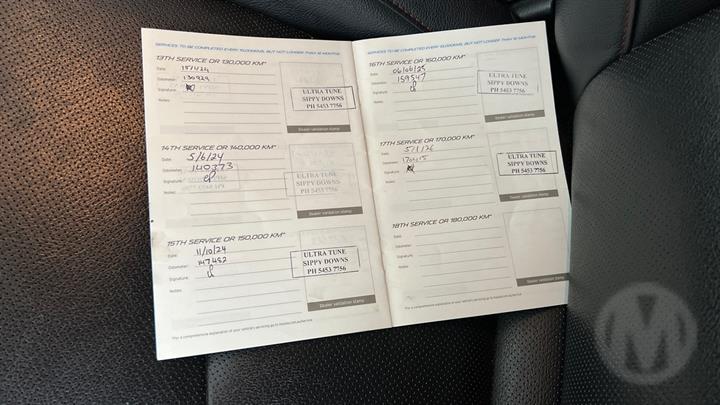 SERVICES TO BE COMPLETED EVERY 10,000KMS, BUT NOT LONGER THAN 12 MONTHS
13TH SERVICE OR 130,000 KM*
Date: 15/1/24
Odometer: 130929
Signature:
Notes:
ULTRA TUNE
SIPPY DOWNS
PH 5453 7756
Dealer validation stamp
14TH SERVICE OR 140,000 KM*
Date: 5/6/24
Odometer: 140373
Signature:
Notes:
ULTRA TUNE
SIPPY DOWNS
PH 5453 7756
Dealer validation stamp
15TH SERVICE OR 150,000 KM*
Date: 11/10/24
Odometer: 147482
Signature:
Notes:
ULTRA TUNE
SIPPY DOWNS
PH 5453 7756
Dealer validation stamp
For a comprehensive explanation of your vehicle's servicing go to
SERVICES TO BE COMPLETED EVERY 10,000KMS, BUT NOT LONGER THAN 12 MONTHS
16TH SERVICE OR 160,000 KM*
Date: 06/06/25
Odometer: 159547
Signature:
Notes:
ULTRA TUNE
SIPPY DOWNS
PH 5453 7756
Dealer validation stamp
17TH SERVICE OR 170,000 KM*
Date: 5/1/26
Odometer:
Signature:
Notes:
ULTRA TUNE
SIPPY DOWNS
PH 5453 7756
Dealer validation stamp
18TH SERVICE OR 180,000 KM*
Date:
Odometer:
Signature:
Notes:
Dealer validation stamp
For a comprehensive explanation of your vehicle's servicing go to
M